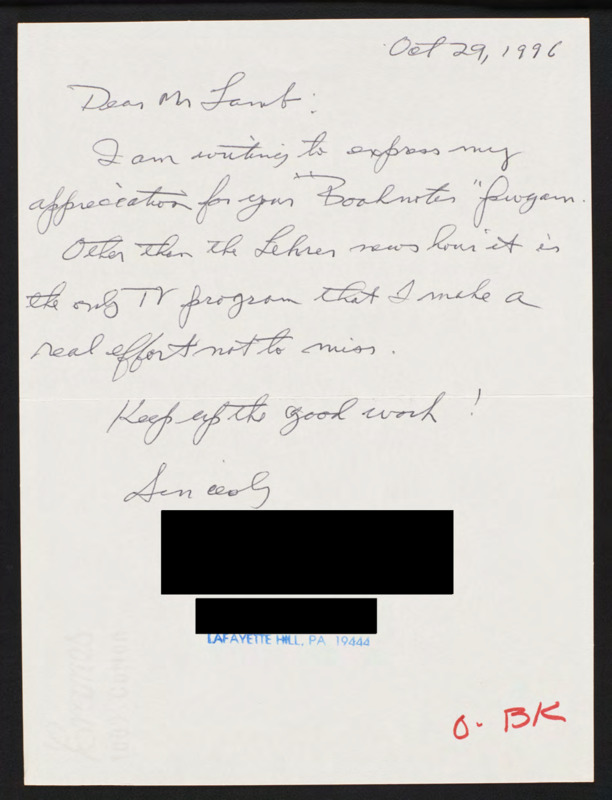 Oct 29, 1996
Dear Mr Lamb:
I am writing to express my
appreciation for your "Booknotes" progam.
Other than the Lehrer news hour it is
the only TV program that I make a
real effort not to miss.
Keep up the good work!
Sincerely
LAFAYETTE HILL, PA 19444
O. BK